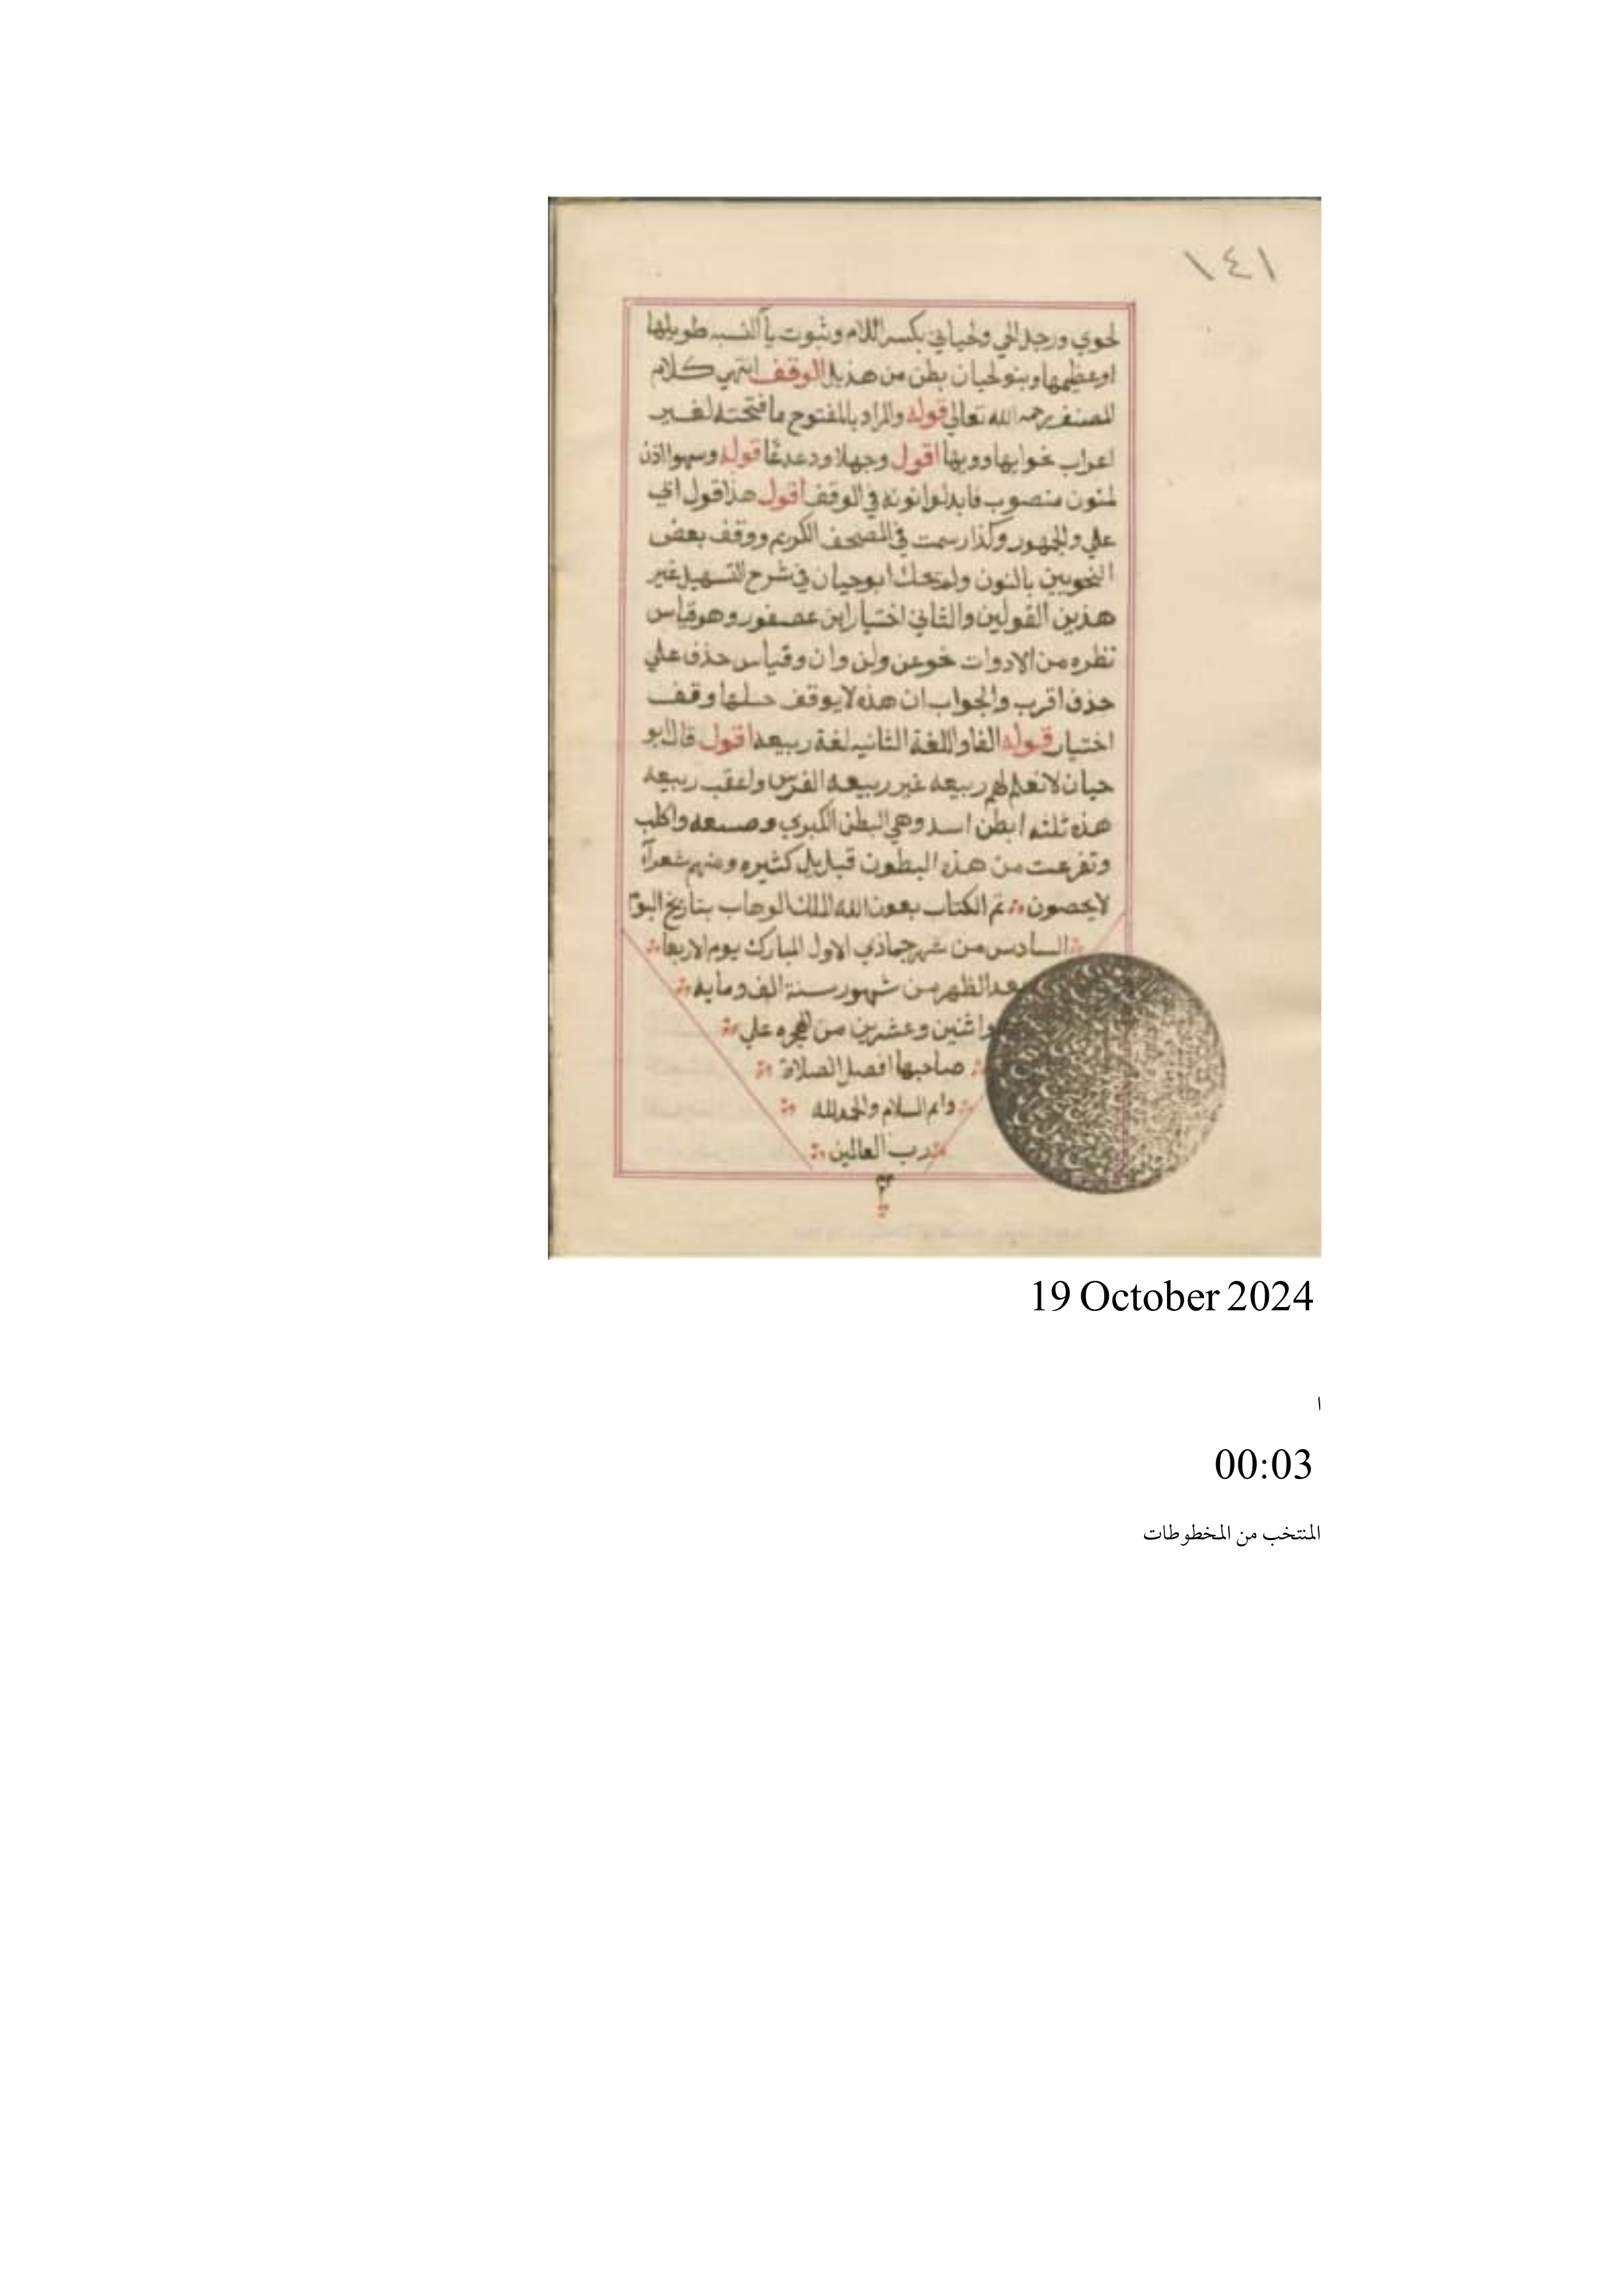 ١٤١
لحوي ورجل الحي ولحياني بكسر اللام وثبوت يآ النسبه طويلها
اوعظيمها وبنو لحيان بطن من هذيل الوقف انتهي كلام
المصنف رحمه الله تعالي قوله والمراد بالمفتوح ما فتحته لغير
اعراب نحو ايها وويها اقول وجهلا ودعدعًا قوله وسهوا اذن
لمنون منصوب فابدلوا نونه في الوقف اقول هذا قول ابي
علي والجمهور وكذا رسمت في المصحف الكريم ووقف بعض
النحويين بالنون ولم يحك ابو حيان في شرح التسهيل غير
هذين القولين والثاني اختيار ابن عصفور وهو قياس
نظره من الادوات نحو عن ولن وان وقياس حذف علي
حذف اقرب والجواب ان هذه لا يوقف عليها وقف
اختيار قوله الفا واللغة الثانيه لغة ربيعه اقول قال ابو
حيان لا نعلم لهم ربيعه غير ربيعه الفرس واعقب ربيعه
هذه ثلثه ابطن اسد وهي البطن الكبري و واكلب
وتفرعت من هذه البطون قبايل كثيره ومنهم شعرآء
لا يحصون تم الكتاب بعون الله الملك الوهاب بتاريخ اليوم
السادس من شهر جماذي الاول المبارك يوم الاربعا
بعد الظهر من شهور سنة الف ومايه
واثنين وعشرين من الهجره علي
صاحبها افضل الصلاة
واتم السلام والحمد لله
رب العالمين
19 October 2024
ا
00:03
المنتخب من المخطوطات